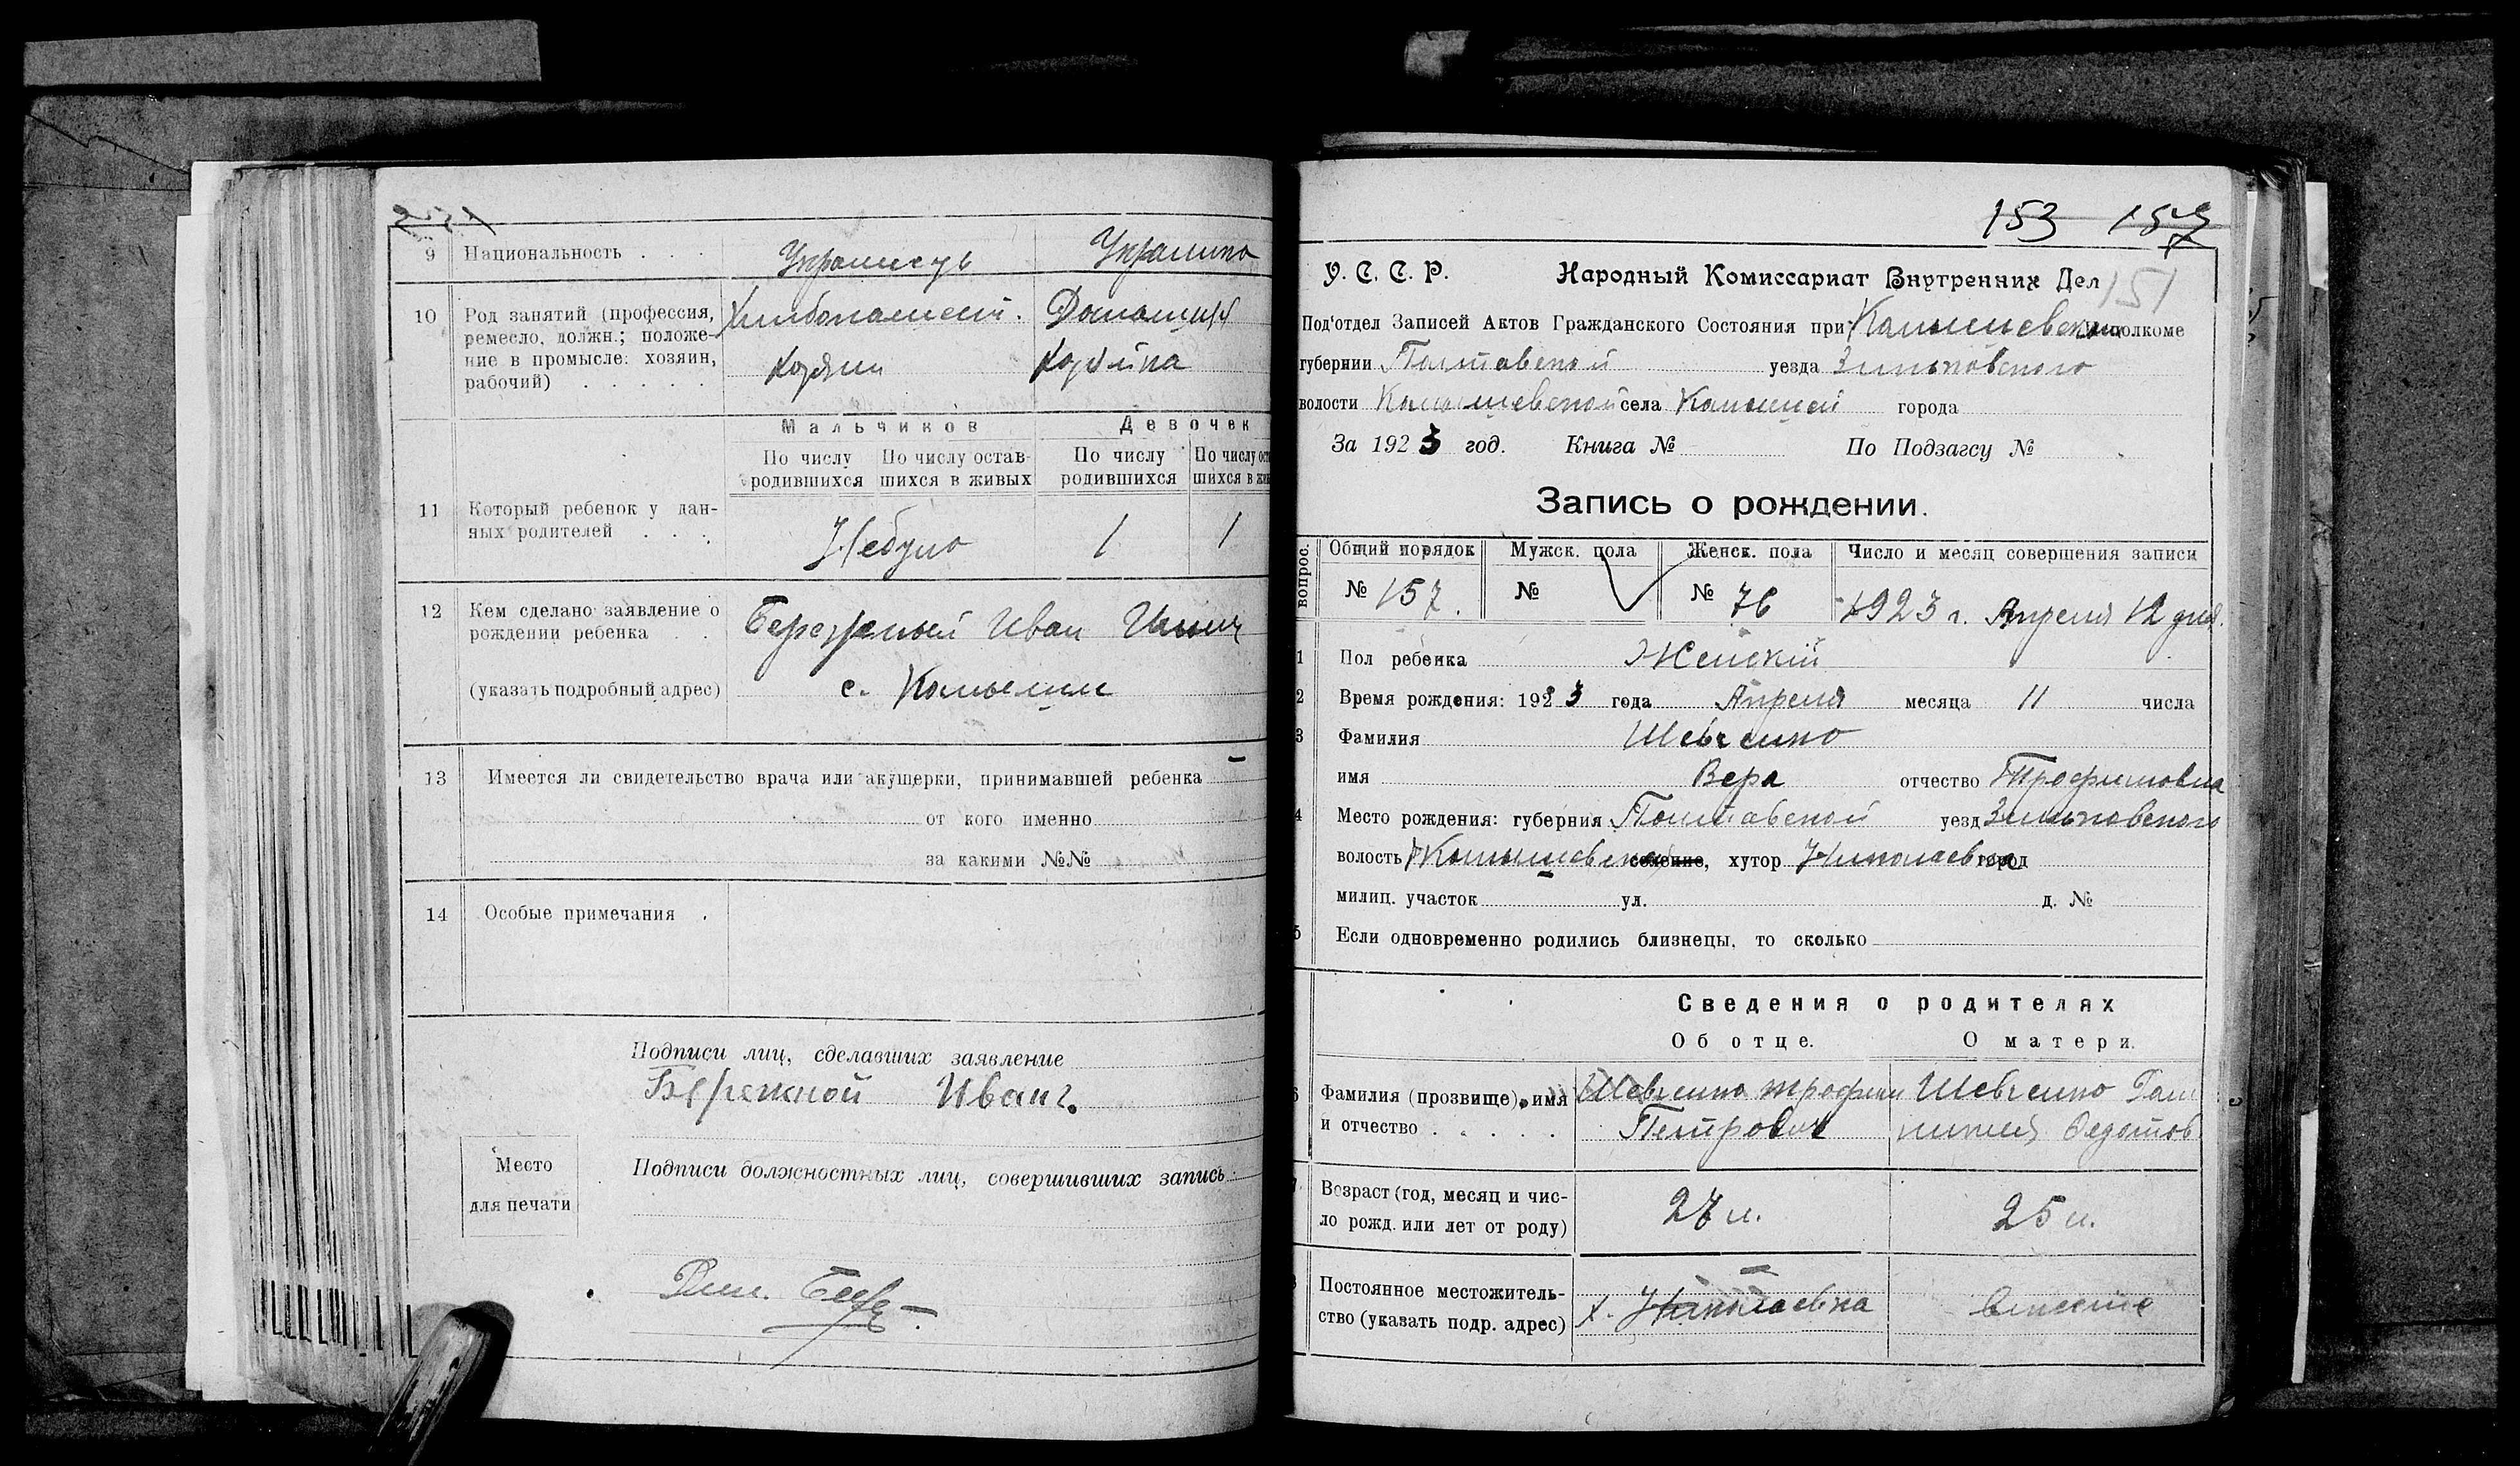 9 Национальность . . . Украинець Украинка
10 Род занятий (профессия, Хлибопашест. Домашня
ремесло, должн.; положе-
ние в промысле: хозяин, хозяин хозяйка
рабочий) . . . . .
Мальчиков Девочек
По числу родившихся По числу остав-шихся в живых По числу родившихся По числу
11 Который ребенок у дан-
ных родителей . . . Небуло 1 1
12 Кем сделано заявление о Бережный Иван
рождении ребенка . .
(указать подробный адрес) с. Камыши
13 Имеется ли свидетельство врача или акушерки, принимавшей ребенка —
от кого именно
за какими №№
14 Особые примечания .
Подписи лиц, сделавших заявление
Бережной Иван
Место
для печати
Подписи должностных лиц, совершивших запись
153 157
151
У. С. С. Р. Народный Комиссариат Внутренних Дел
Под'отдел Записей Актов Гражданского Состояния при Камышевском Исполкоме
губернии Полтавской уезда Зиньковского
волости Камышевской села Камышей города
За 1923 год. Книга № По Подзагсу №
Запись о рождении.
вопрос. Общий порядок Мужск. пола Женск. пола Число и месяц совершения записи
№ 157. № № 76 1923 г. Апреля 12 дня.
1 Пол ребенка Женский
2 Время рождения: 1923 года Апреля месяца 11 числа
3 Фамилия Шевченко
имя Вера отчество Трофимовна
4 Место рождения: губерния Полтавской уезд Зиньковского
волость Камышевская селение, хутор Николаевка город
милиц. участок ул. д. №
5 Если одновременно родились близнецы, то сколько
Сведения о родителях
Об отце. О матери.
6 Фамилия (прозвище), имя Шевченко Трофим Шевченко
и отчество . . . . . Петрович Федотов
Возраст (год, месяц и чис-
ло рожд. или лет от роду) 27 л. 25 л.
Постоянное местожитель-
ство (указать подр. адрес) х. Николаевка вместе